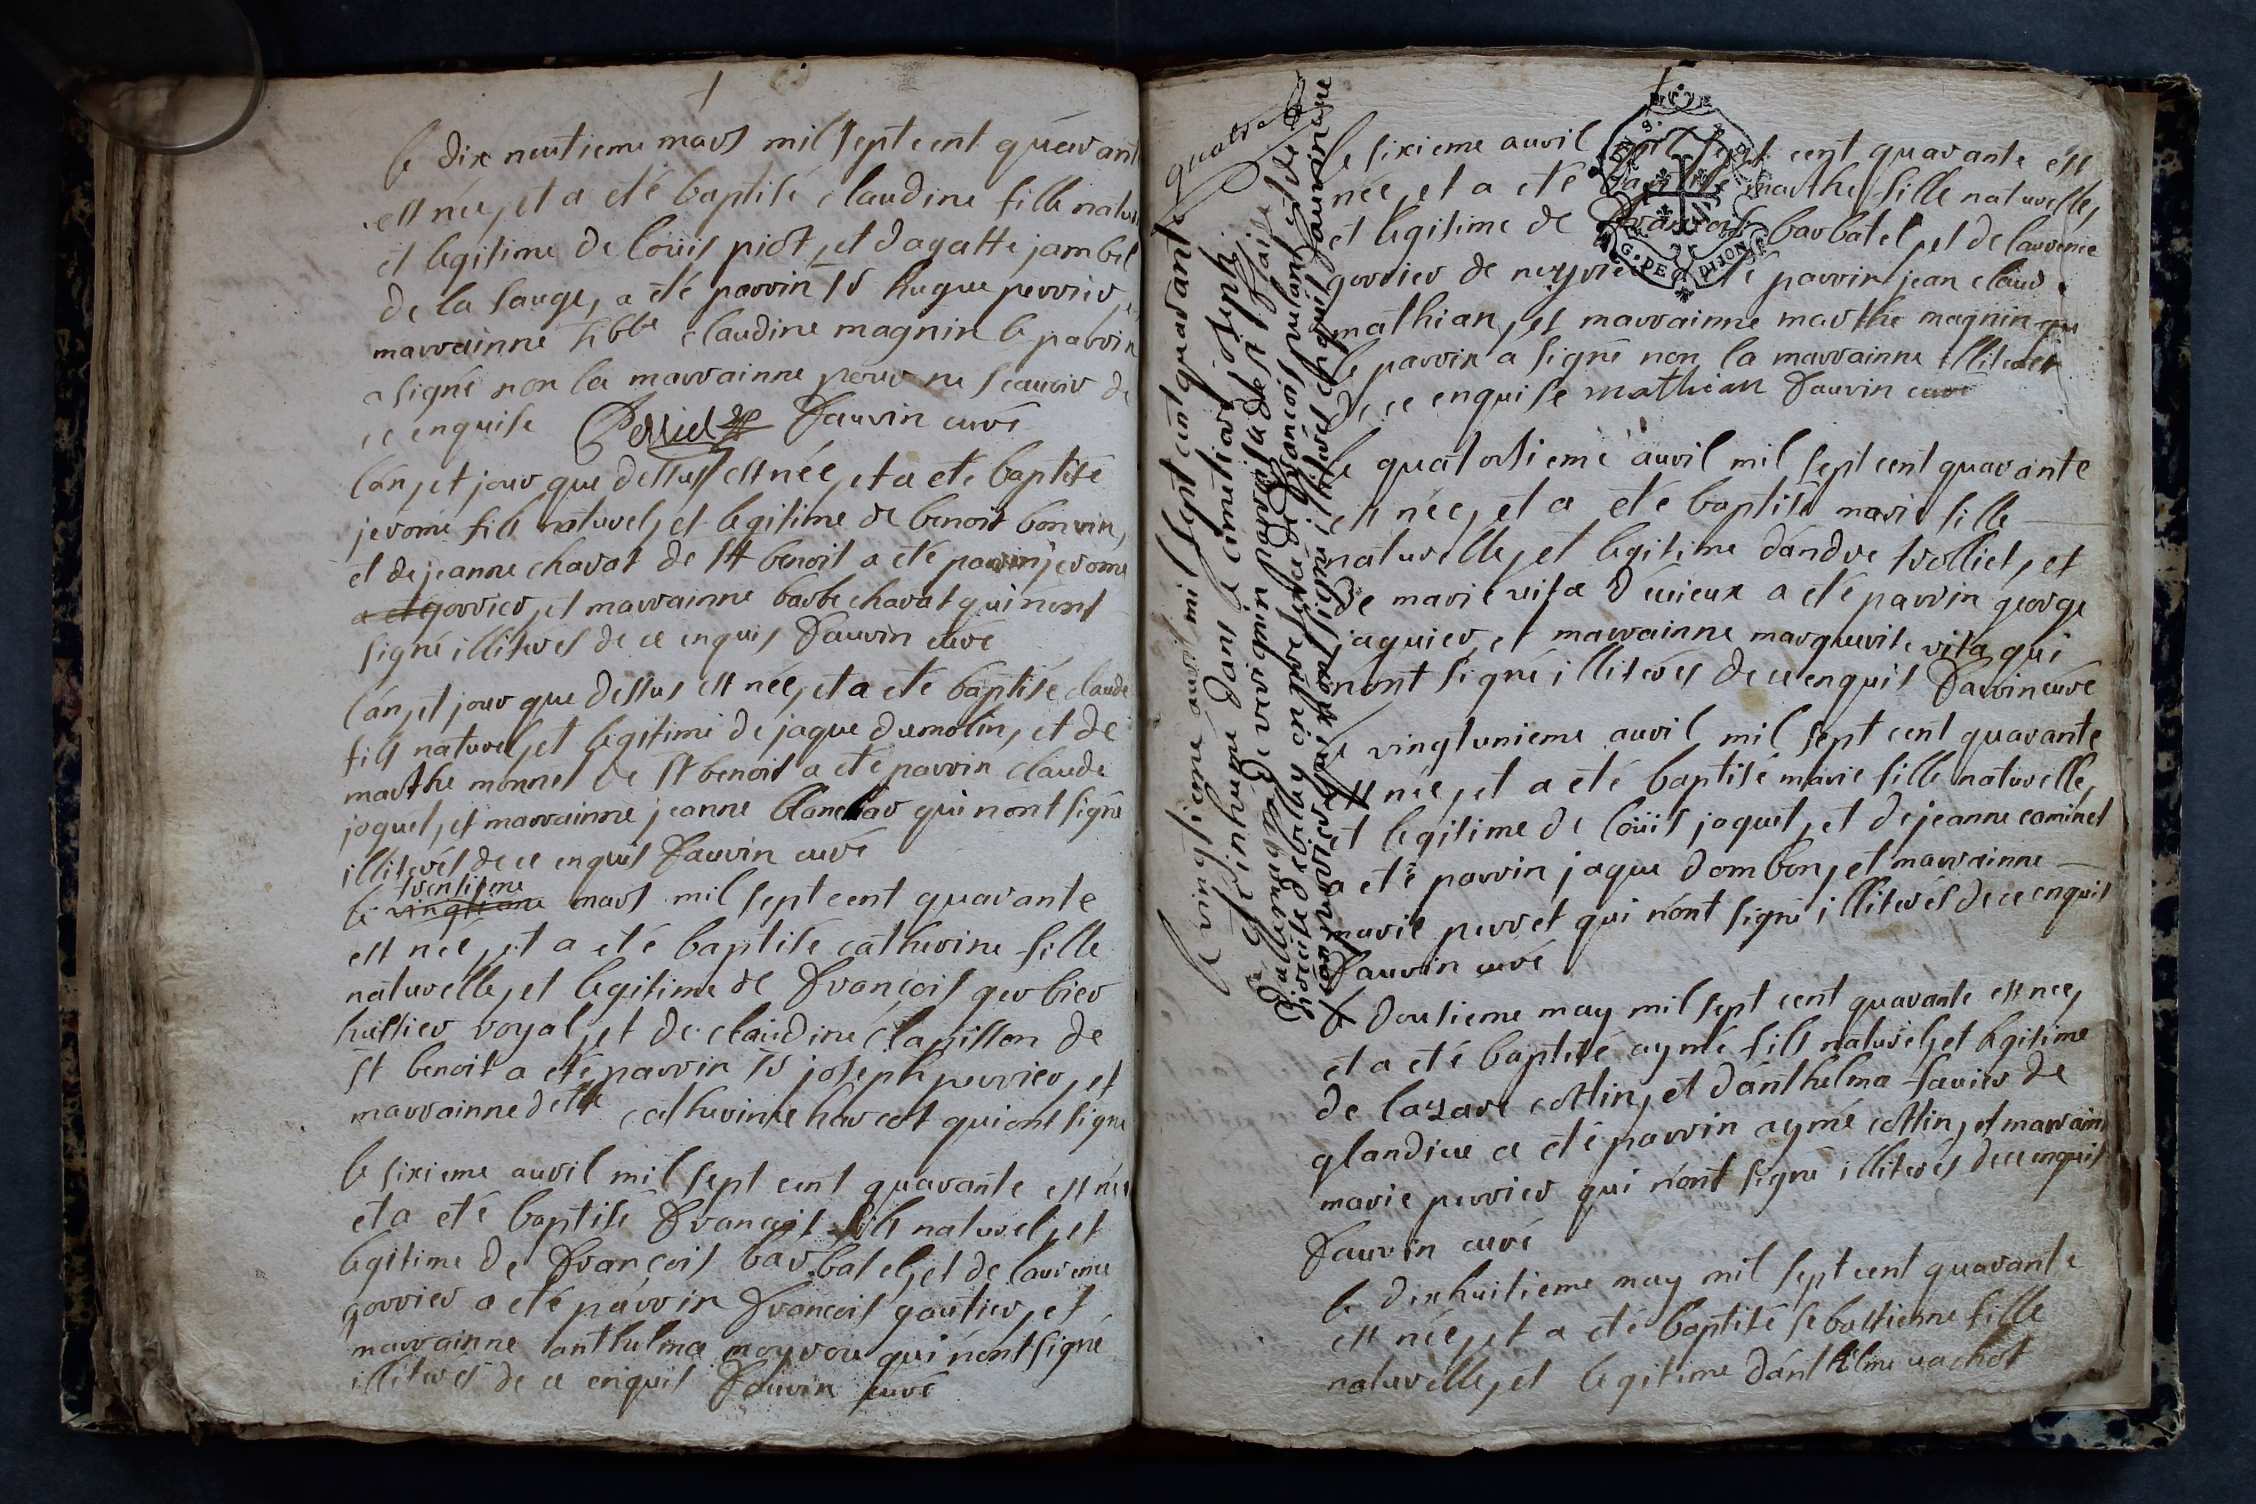 le dix neuvieme mars mil sept cent quarant
est née, et a eté baptisé claudine fille natur
et legitime de loüis piot, et dagatte jambel
de la sauge, a été parrin sr hugue perrier, et
marrainne claudine magnin le parrin
a signé non la marrainne pour ne scauvoir de
ce enquise Perrier favrin curé
l'an, et jour que dessus est née, et a eté baptisé
jerome fils naturel, et legitime de benoit bonvin,
et de jeanne chavat de st benoit a eté parrin jerome
gorrier, et marrainne barbe chavat qui n'ont
signé illiterés de ce enquis favrin curé
l'an, et jour que dessus est née, et a eté baptisé claude
fils naturel, et legitime de jaque dumolin, et de
marthe monnet de st benoit a eté parrin claude
joquet, et marrainne jeanne blanchar qui n'ont signé
illiterés de ce enquis favrin curé
trentieme
le vingtieme mars mil sept cent quarante
est née, et a eté baptisé catherine fille
naturelle, et legitime de françois gerbier
huissier royal, et de claudine clapisson de
st benoit a eté parrin sr joseph perrier, et
marrainne delle catherinne harcot qui ont signé
le sixieme avril mil sept cent quarante est née
et a eté baptisé françois fils naturel, et
legitime de françois barbatel, et de laurence
gorrier a eté parrin françois gautier, et
marrainne anthelma moyrou qui n'ont signé
illiterés de ce enquis favrin curé
quatre
le vingtieme avril mil sept cent quarante
a eté inhumé dans le cimetiere joseph
guillermet de verignin parroisse de st blaise
presents françois
favrin curé
le sixieme avril mil sept cent quarante est
née, et a eté baptisé marthe fille naturelle,
et legitime de françois barbatel, et de laurence
gorrier de neyrieu eté parrin jean claud
mathian, et marrainne marthe magnin qu
le parrin a signé non la marrainne illiterée
de ce enquise mathian favrin curé
G. DE DIJON
le quatorsieme avril mil sept cent quarante
est née, et a eté baptisé marie fille
naturelle, et legitime d'andre trolliet, et
de marie vita d'evieux a eté parrin george
jaquier, et marrainne marguerite vita qui
n'ont signé illiterés de ce enquis favrin curé
le vingtunieme avril mil sept cent quarante
est née, et a eté baptisé marie fille naturelle,
et legitime de loüis joquet, et de jeanne caminet
a eté parrin jaque dombon, et marrainne
marie perret qui n'ont signé illiterés de ce enquis
favrin curé
le dousieme may mil sept cent quarante est née,
et a eté baptisé aymé fils naturel, et legitime
de lazare cottin, et d'anthelma favier de
glandieu a eté parrin aymé cottin, et marrain
marie perrier qui n'ont signé illiterés de ce enquis
favrin curé
le dixhuitieme may mil sept cent quarante
est née, et a eté baptisé sebastienne fille
naturelle, et legitime d'anthelme vachot